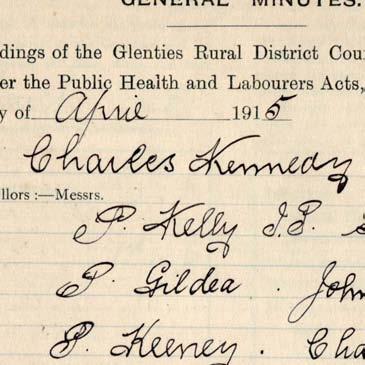 GENERAL MINUTES.
dings of the Glenties Rural District Cou
er the Public Health and Labourers Acts,
y of April 1915
Charles Kennedy
llors :—Messrs.
P. Kelly J.P.
P. Gildea . John
P. Keeney . Cha